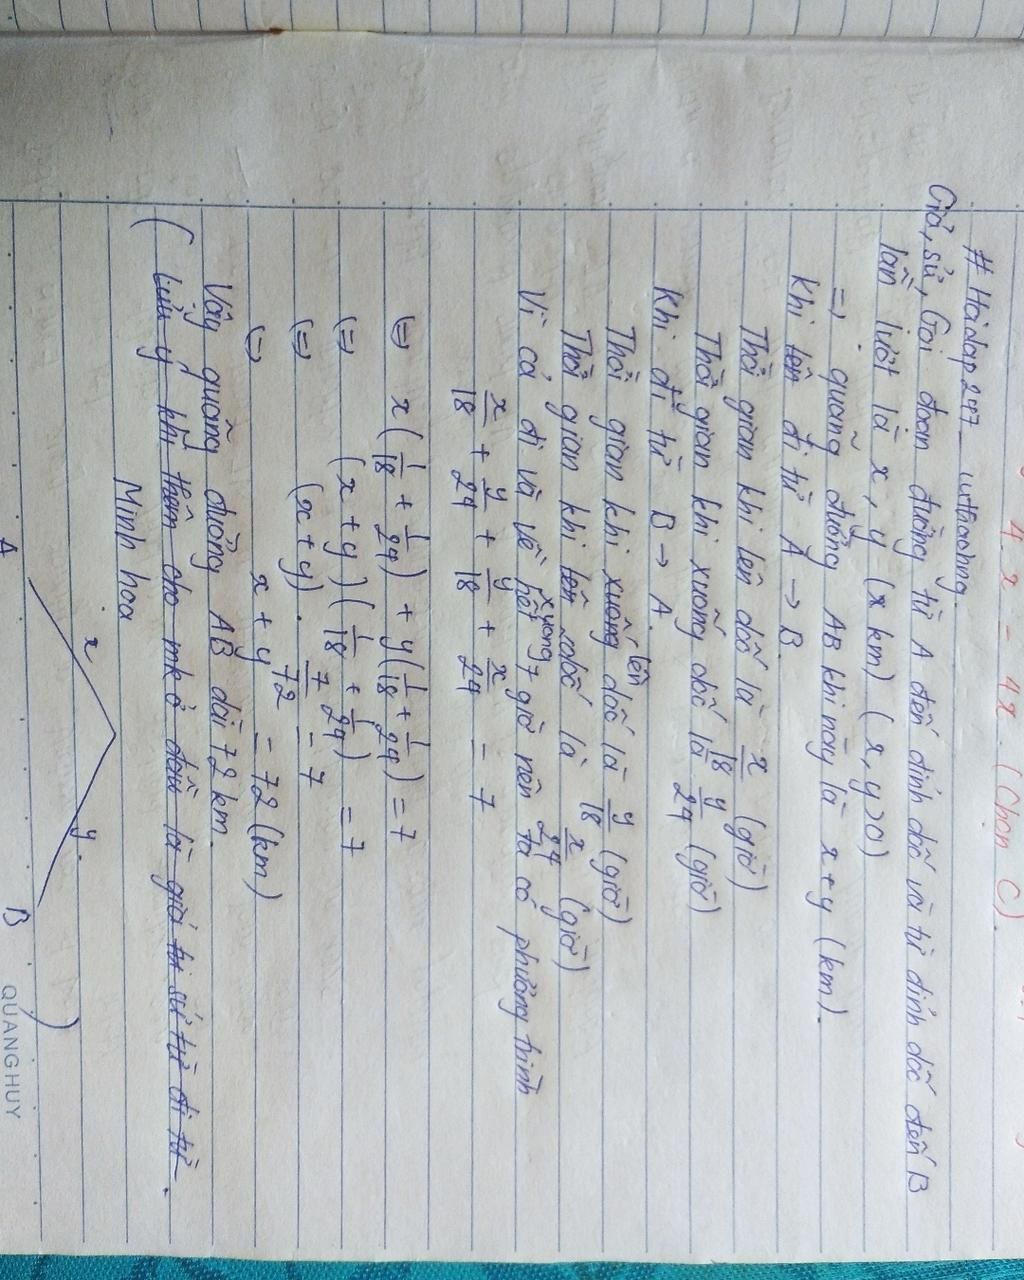 4x - 4x. (Chọn C).
# Hoidap247_
Giả sử, Gọi đoạn đường từ A đến đỉnh dốc và từ đỉnh dốc đến B
lần lượt là x, y (x km) (x, y > 0)
=> quãng đường AB khi này là x + y (km).
Khi đi từ A → B
Thời gian khi lên dốc là x/18 (giờ)
Thời gian khi xuống dốc là y/24 (giờ)
Khi đi từ B → A.
Thời gian khi xuống lên dốc là y/18 (giờ)
Thời gian khi xuống dốc là x/24 (giờ)
Vì cả đi và về hết 7 giờ nên ta có phương trình
x/18 + y/24 + y/18 + x/24 = 7
(=) x(1/18 + 1/24) + y(1/18 + 1/24) = 7
(=) (x + y)(1/18 + 1/24) = 7
(=) (x + y) . 7/72 = 7
(=) x + y = 72 (km)
Vậy quãng đường AB dài 72 km.
( Lưu ý khi thêm cho mk ở đầu là giả sử đi từ .
Minh hoạ
x y
A B )
QUANG HUY